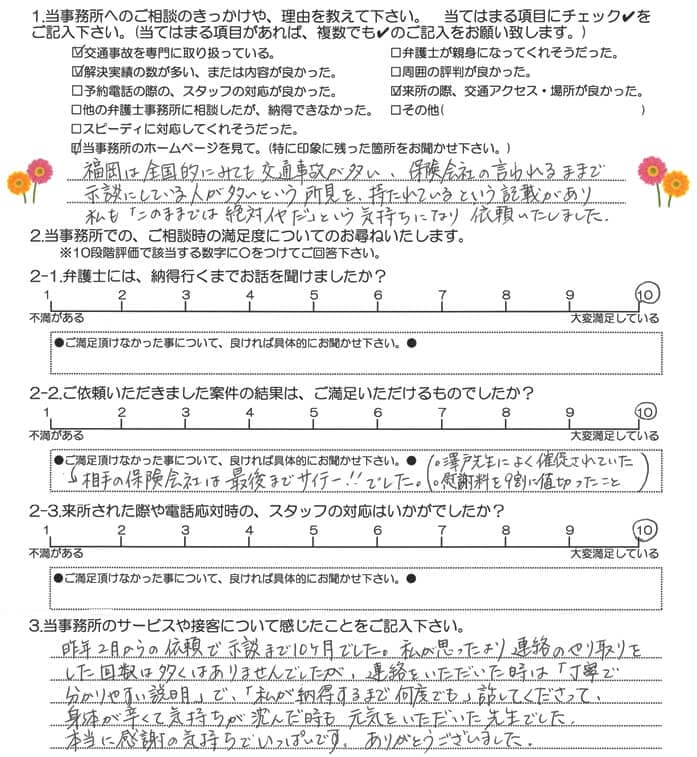 1.当事務所へのご相談のきっかけや、理由を教えて下さい。 当てはまる項目にチェック✔を
ご記入下さい。(当てはまる項目があれば、複数でも✔のご記入をお願い致します。)
☑交通事故を専門に取り扱っている。 □弁護士が親身になってくれそうだった。
☑解決実績の数が多い、または内容が良かった。 □周囲の評判が良かった。
□予約電話の際の、スタッフの対応が良かった。 ☑来所の際、交通アクセス・場所が良かった。
□他の弁護士事務所に相談したが、納得できなかった。 □その他( )
□スピーディに対応してくれそうだった。
☑当事務所のホームページを見て。(特に印象に残った箇所をお聞かせ下さい。)
福岡は全国的にみても交通事故が多い、保険会社の言われるままで
示談にしている人が多いという所見を、持たれているという記載があり
私も「このままでは絶対イヤだ」という気持ちになり依頼いたしました.
2.当事務所での、ご相談時の満足度についてのお尋ねいたします。
※10段階評価で該当する数字に○をつけてご回答下さい。
2-1.弁護士には、納得行くまでお話を聞けましたか?
1 2 3 4 5 6 7 8 9 10
不満がある 大変満足している
●ご満足頂けなかった事について、良ければ具体的にお聞かせ下さい。●
2-2.ご依頼いただきました案件の結果は、ご満足いただけるものでしたか?
1 2 3 4 5 6 7 8 9 10
不満がある 大変満足している
●ご満足頂けなかった事について、良ければ具体的にお聞かせ下さい。● (。澤戸先生によく催促されていた
相手の保険会社は最後までサイテー!!でした。 。慰謝料を9割に値切ったこと)
2-3.来所された際や電話応対時の、スタッフの対応はいかがでしたか?
1 2 3 4 5 6 7 8 9 10
不満がある 大変満足している
●ご満足頂けなかった事について、良ければ具体的にお聞かせ下さい。●
3.当事務所のサービスや接客について感じたことをご記入下さい。
昨年2月からの依頼で示談まで10ヶ月でした。私が思ったより連絡のやり取りを
した回数は多くはありませんでしたが、連絡をいただいた時は「丁寧で
分かりやすい説明」で、「私が納得するまで何度でも」話してくださって、
身体が辛くて気持ちが沈んだ時も元気をいただいた先生でした.
本当に感謝の気持ちでいっぱいです。ありがとうございました.